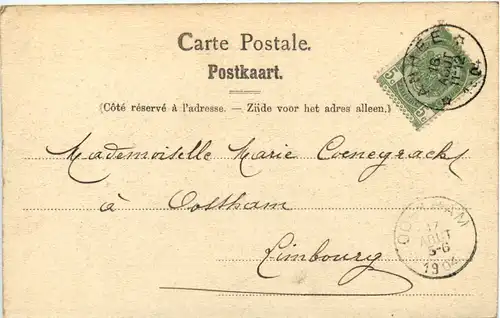 Carte Postale.
Postkaart.
(Côté réservé à l'adresse. — Zijde voor het adres alleen.)
5
5
ANHÉE
16
AOUT
Mademoiselle Marie Coenegracht
à
Oostham
Limbourg
OOSTHAM
17
AOUT
5-6
1904